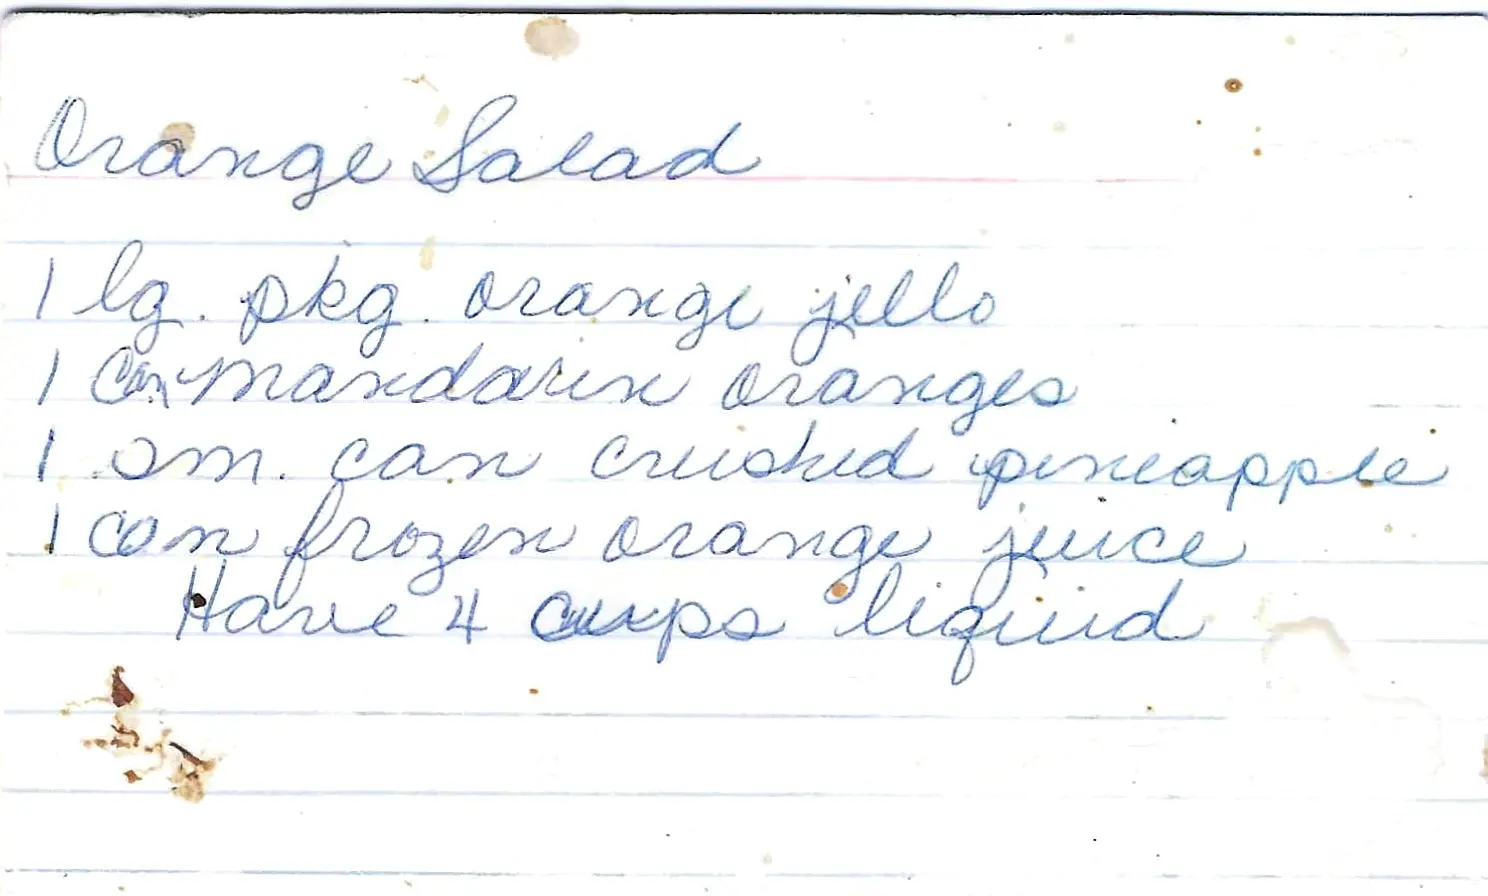 Orange Salad
1 lg. pkg. orange jello
1 can mandarin oranges
1 sm. can crushed pineapple
1 can frozen orange juice
Have 4 cups liquid